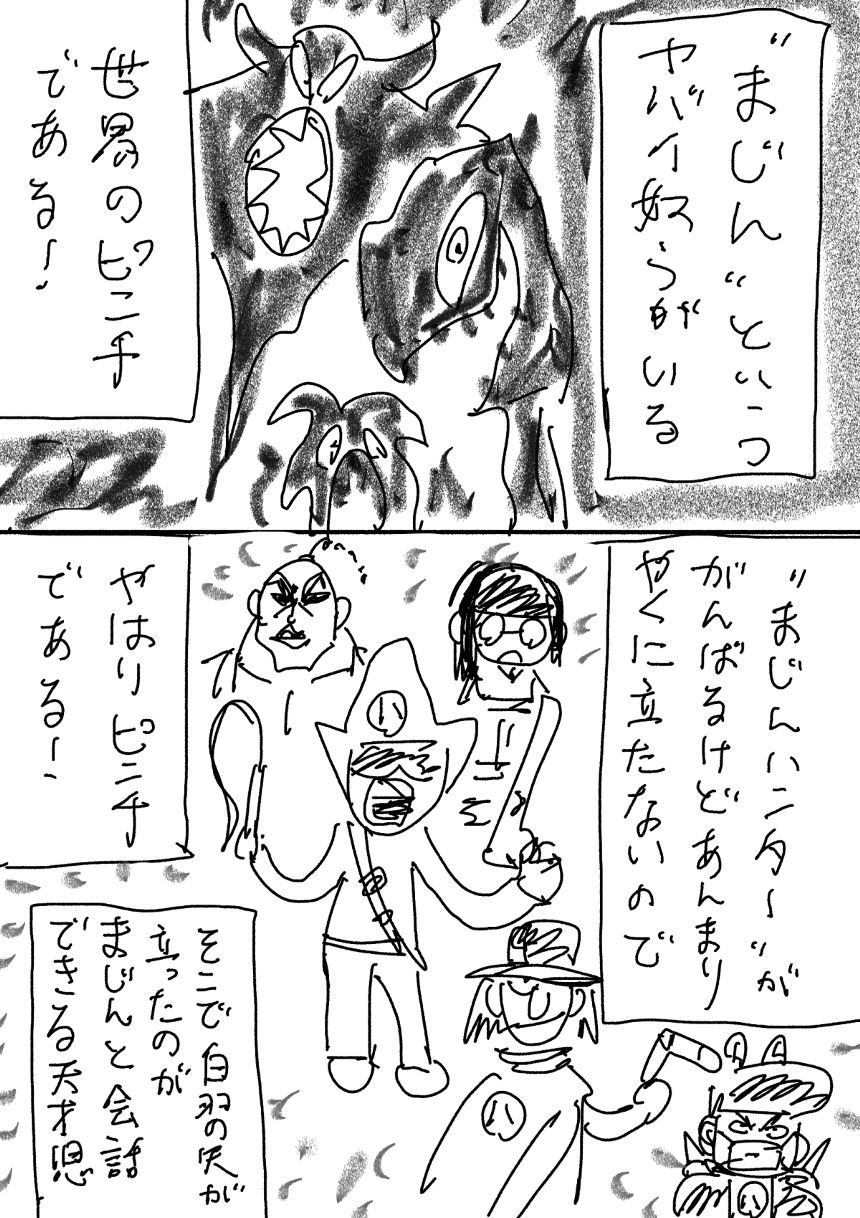 “まじん”という
ヤバイ奴らがいる
世界のピンチ
である！
“まじんハンター”が
がんばるけどあんまり
やくに立たないので
やはりピンチ
である！
ハ
ハ
ハ
そこで白羽の矢が
立ったのが
まじんと会話
できる天才児